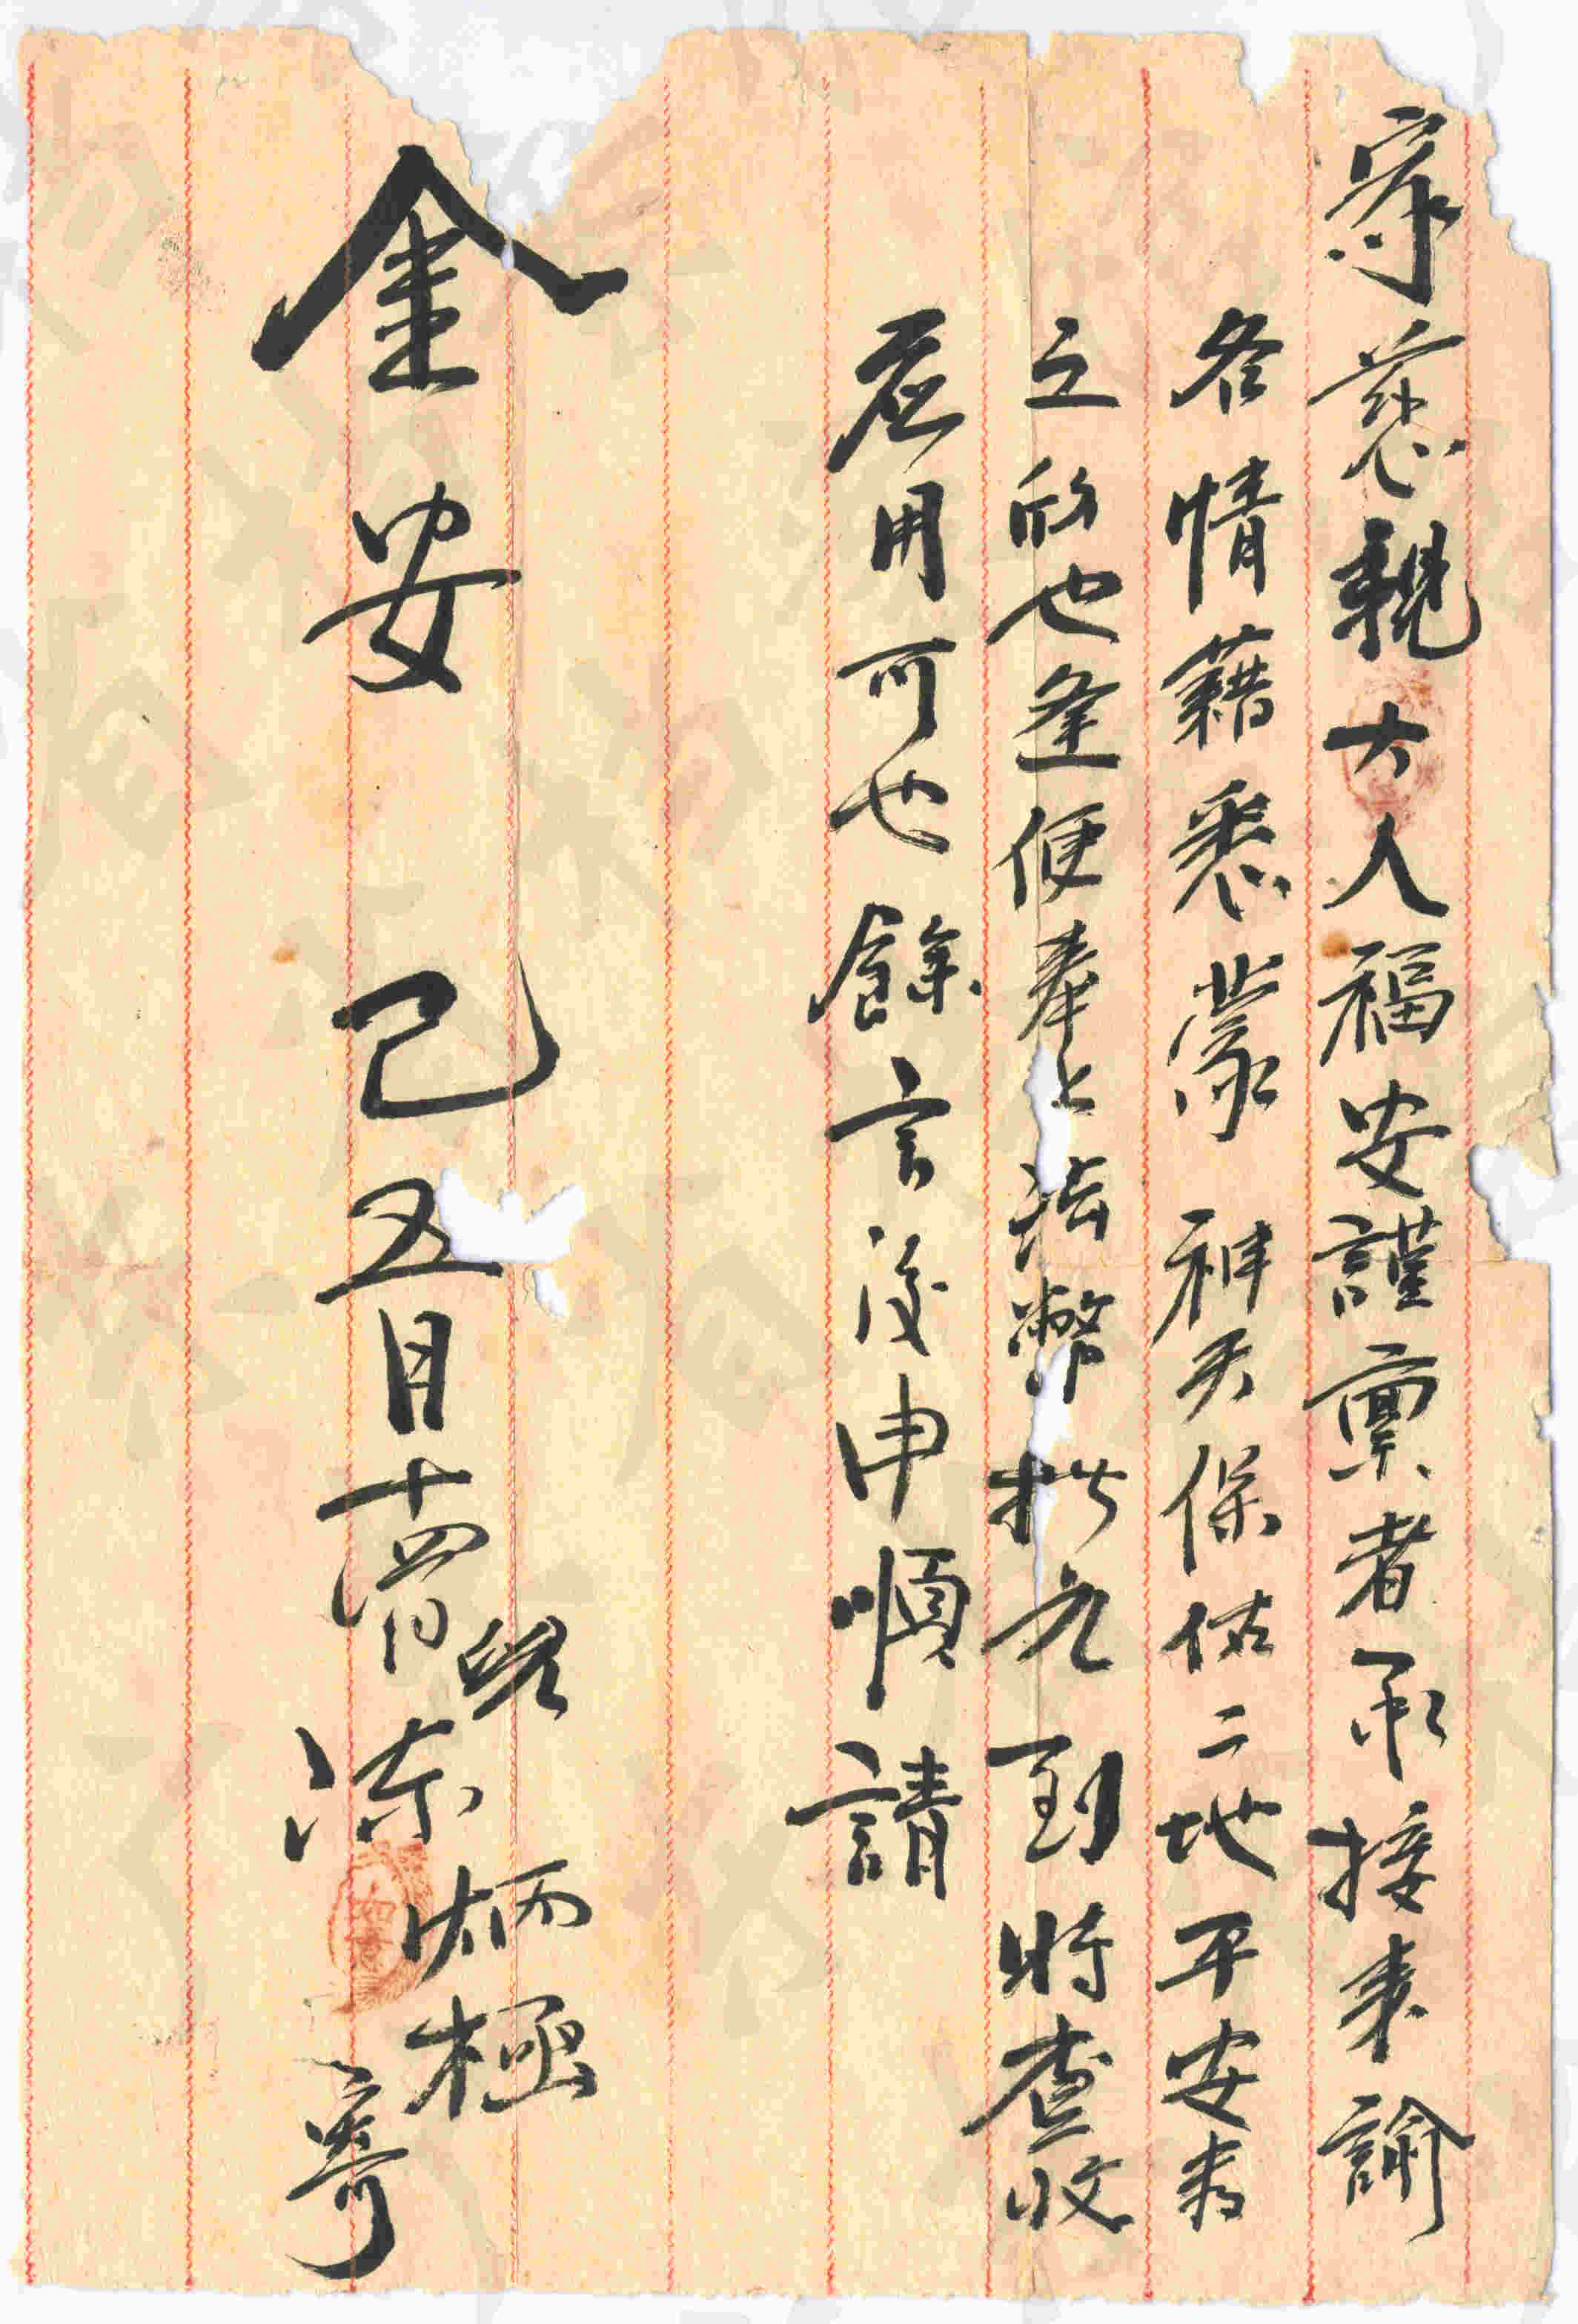 字慈親大人福安謹稟者承接来諭
各情藉悉蒙神天保佑二地平安为
立欣也逢便奉上法幣拱元到时查收
应用可也餘言後申順請
金安
己五月十四日
兒
陳炳極寄